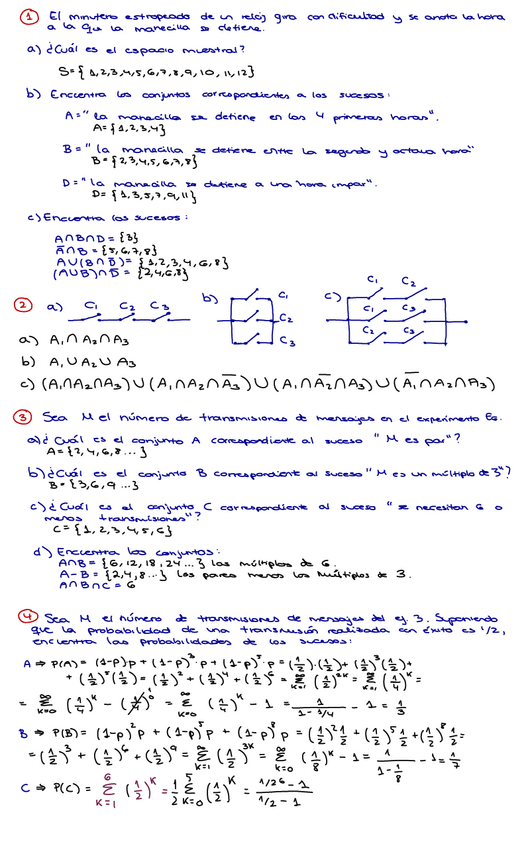 ① El minutero estropeado de un reloj gira con dificultad y se anota la hora
a la que la manecilla se detiene.
a) ¿Cuál es el espacio muestral?
S={1,2,3,4,5,6,7,8,9,10,11,12}
b) Encuentra los conjuntos correspondientes a los sucesos:
A="La manecilla se detiene en las 4 primeras horas".
A={1,2,3,4}
B="la manecilla se detiene entre la segunda y octava hora"
B={2,3,4,5,6,7,8}
D="la manecilla se detiene a una hora impar".
D={1,3,5,7,9,11}
c) Encuentra los sucesos:
A∩B∩D={3}
A̅∩B={5,6,7,8}
A∪(B∩D̅)={1,2,3,4,6,8}
(A∪B)∩D̅={2,4,6,8}
② a) C₁ C₂ C₃ b) C₁ C₂ C₃ c) C₁ C₂ C₁ C₃ C₂ C₃
a) A₁∩A₂∩A₃
b) A₁∪A₂∪A₃
c) (A₁∩A₂∩A̅₃)∪(A₁∩A₂∩A̅₃)∪(A₁∩A̅₂∩A₃)∪(A̅₁∩A₂∩A₃)
③ Sea M el número de transmisiones de mensajes en el experimento E6.
a) ¿Cuál es el conjunto A correspondiente al suceso "M es par"?
A={2,4,6,8...}
b) ¿Cuál es el conjunto B correspondiente al suceso "M es un múltiplo de 3"?
B={3,6,9...}
c) ¿Cuál es el conjunto C correspondiente al suceso "se necesitan 6 o
menos transmisiones"?
C={1,2,3,4,5,6}
d) Encuentra los conjuntos:
A∩B={6,12,18,24...} los múltiplos de 6.
A-B={2,4,8...} los pares menos los múltiplos de 3.
A∩B∩C=6
④ Sea M el número de transmisiones de mensajes del ej. 3. Suponiendo
que la probabilidad de una transmisión realizada con éxito es 1/2,
encuentra las probabilidades de los sucesos:
A ⇒ P(A)=(1-p)p+(1-p)³·p+(1-p)⁵·p=(1/2)·(1/2)+(1/2)³(1/2)+
+(1/2)⁵(1/2)=(1/2)²+(1/2)⁴+(1/2)⁶=∑k=1^∞(1/2)^2K=∑k=1^∞(1/4)^K=
=∑k=0^∞(1/4)^K-(1/4)⁰=∑k=0^∞(1/4)^K-1=1/(1-1/4)-1=1/3
B ⇒ P(B)=(1-p)²p+(1-p)⁵p+(1-p)⁸p=(1/2)²1/2+(1/2)⁵1/2+(1/2)⁸1/2=
=(1/2)³+(1/2)⁶+(1/2)⁹=∑k=1^∞(1/2)^3K=∑k=0^∞(1/8)^K-1=1/(1-1/8)-1=1/7
C ⇒ P(C)=∑K=1^6(1/2)^K=1/2∑K=0^5(1/2)^K=(1/26-1)/(1/2-1)